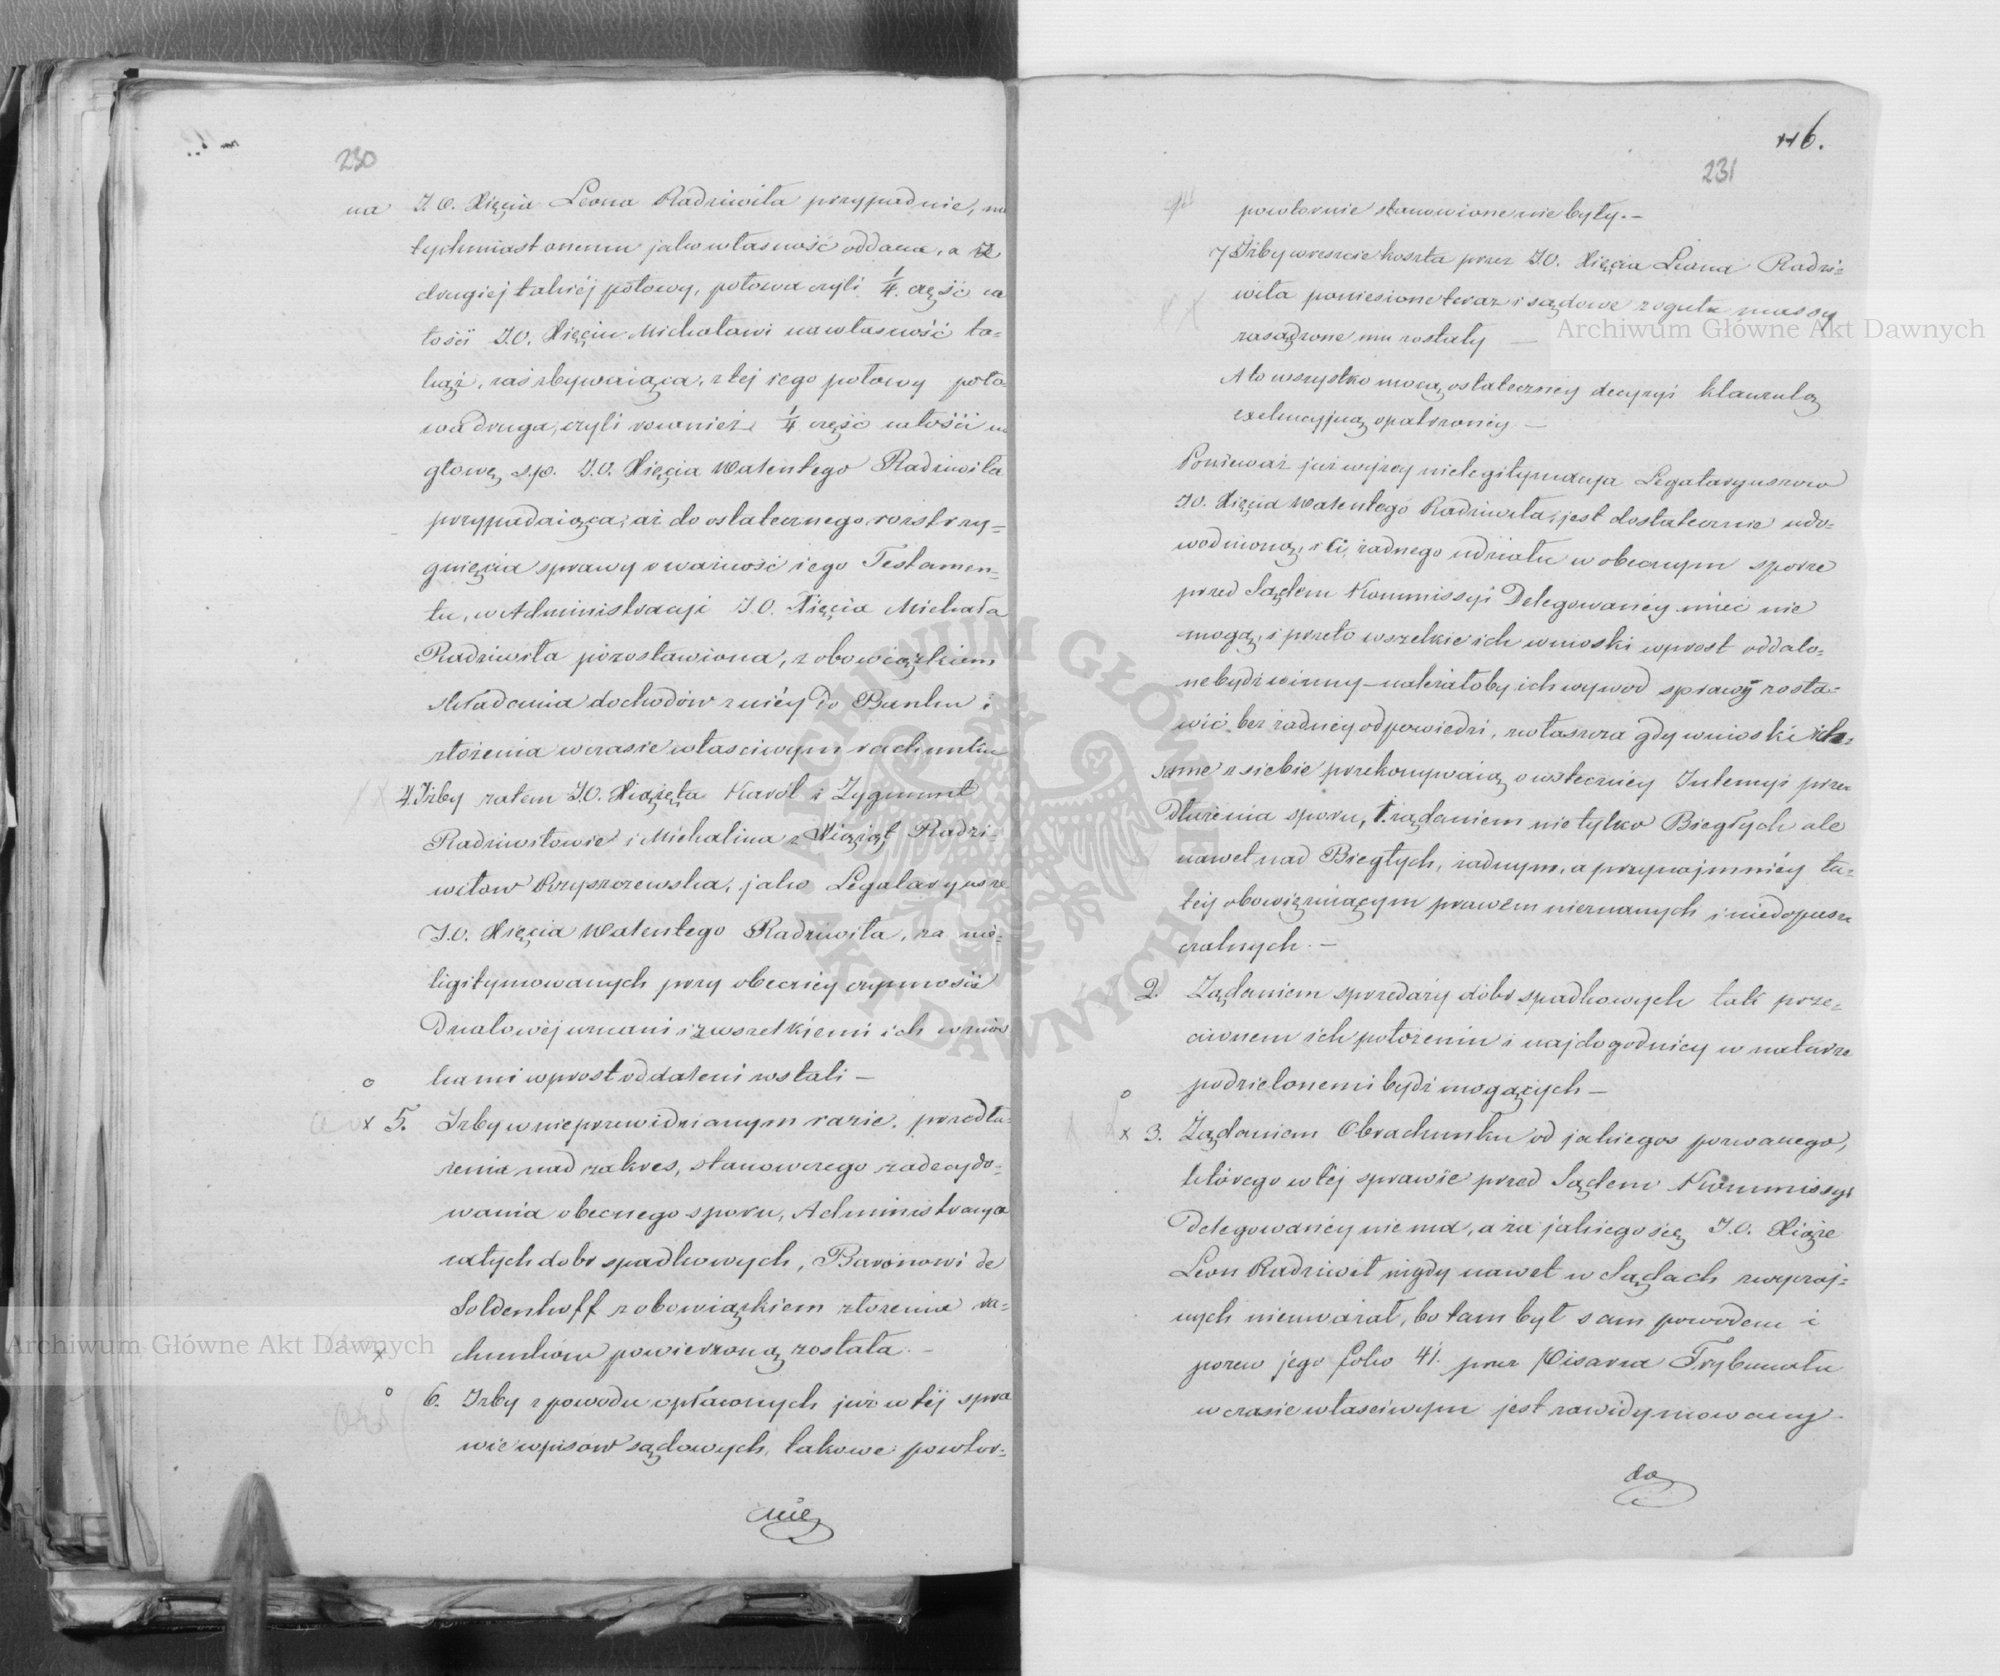 230
na J.O. Xięcia Leona Radziwiła przypadnie, na
tychmiast onemu jako własność oddana, a z
drugiej takiéj połowy, połowa czyli 1/4 część ca
łości J.O. Xięciu Michałowi na własność ta-
każ, zaś zbywaiąca, z téj iego połowy poło-
wa druga, czyli rownież 1/4 część całości na
głowę s.p. J.O. Xięcia Walentego Radziwiła
przypadaiąca, aż do ostatecznego rozstrzy-
gnięcia sprawy o ważność iego Testamen-
tu, w Administracyi J.O. Xięcia Michała
Radziwiła pozostawiona, z obowiązkiem
składania dochodów z niéy do Banku i
złożenia w czasie właściwym rachunku
4. Iżby zatem J.O. Xiążęta Karól i Zygmunt
Radziwiłowie i Michalina z Xiążąt Radzi-
wiłow Rzyszczewska, jako Legataryusze
J.O. Xięcia Walentego Radziwiła, za nie-
ligitymowanych przy obecnéy czynności
Działowéj uznani i z wszelkiemi ich wnios
kami wprost oddaleni zostali —
o
x 5. Iżby w nieprzewidzianym razie, przedłu-
żenia nad zakres, stanowczego zadecydo-
wania obecnego sporu, Administracya
całych dobr spadkowych, Baronowi de
Soldenhoff z obowiązkiem złożenia ra-
x chunków powierzoną została. —
o 6. Iżby z powodu opłaconych już w téj spra
wie wpisów sądowych, takowe powtór-
nie
116.
231
powtornie stanowione nie były. —
7 Iżby wreszcie koszta przez J.O. Xięcia Leona Radzi-
wiła poniesione teraz i sądowe z ogułu massy
zasądzone mu zostały —
A to wszystko mocą ostatecznéy decyzyi klauzulą
exekucyjną opatrzonéy —
Ponieważ już wyżey nielegitymacya Legataryuszow
J.O. Xięcia Walentego Radziwiła, jest dostatecznie udo-
wodnioną, i ci żadnego udziału w obecnym sporze
przed Sądem Kommissyi Delegowanéy mieć nie
mogą, i przeto wszelkie ich wnioski wprost oddalo-
ne bydź winny — należałoby ich wywod sprawy zosta-
wić bez żadnéy odpowiedzi, zwłaszcza gdy wnioski te-
same z siebie przekonywaią o wstecznéy Intencyi prze
dłużenia sporu, 1. żądaniem nie tylko Biegłych ale
nawet nad Biegłych, żadnym, a przynajmniéy tu-
téy obowięzuiącym prawem nieznanych i niedopusz
czalnych. —
2. Żądaniem sprzedaży dobr spadkowych tak prze-
ciwnem ich położeniu i najdogodniéy w naturze
podzielonemi bydź mogących —
o
x 3. Żądaniem Obrachunku od jakiegos pozwanego,
którego w téj sprawie przed Sądem Kommissyi
Delegowanéy nie ma, a za jakiego się J.O. Xiąże
Leon Radziwił nigdy nawet w Sądach zwyczaj-
nych nie uważał, bo tam był sam powodem i
pozew jego folio 41. przez Pisarza Trybunału
w czasie właściwym jest zawidymowany —
da
Archiwum Główne Akt Dawnych
Archiwum Główne Akt Dawnych
ARCHIWUM GŁÓWNE AKT DAWNYCH